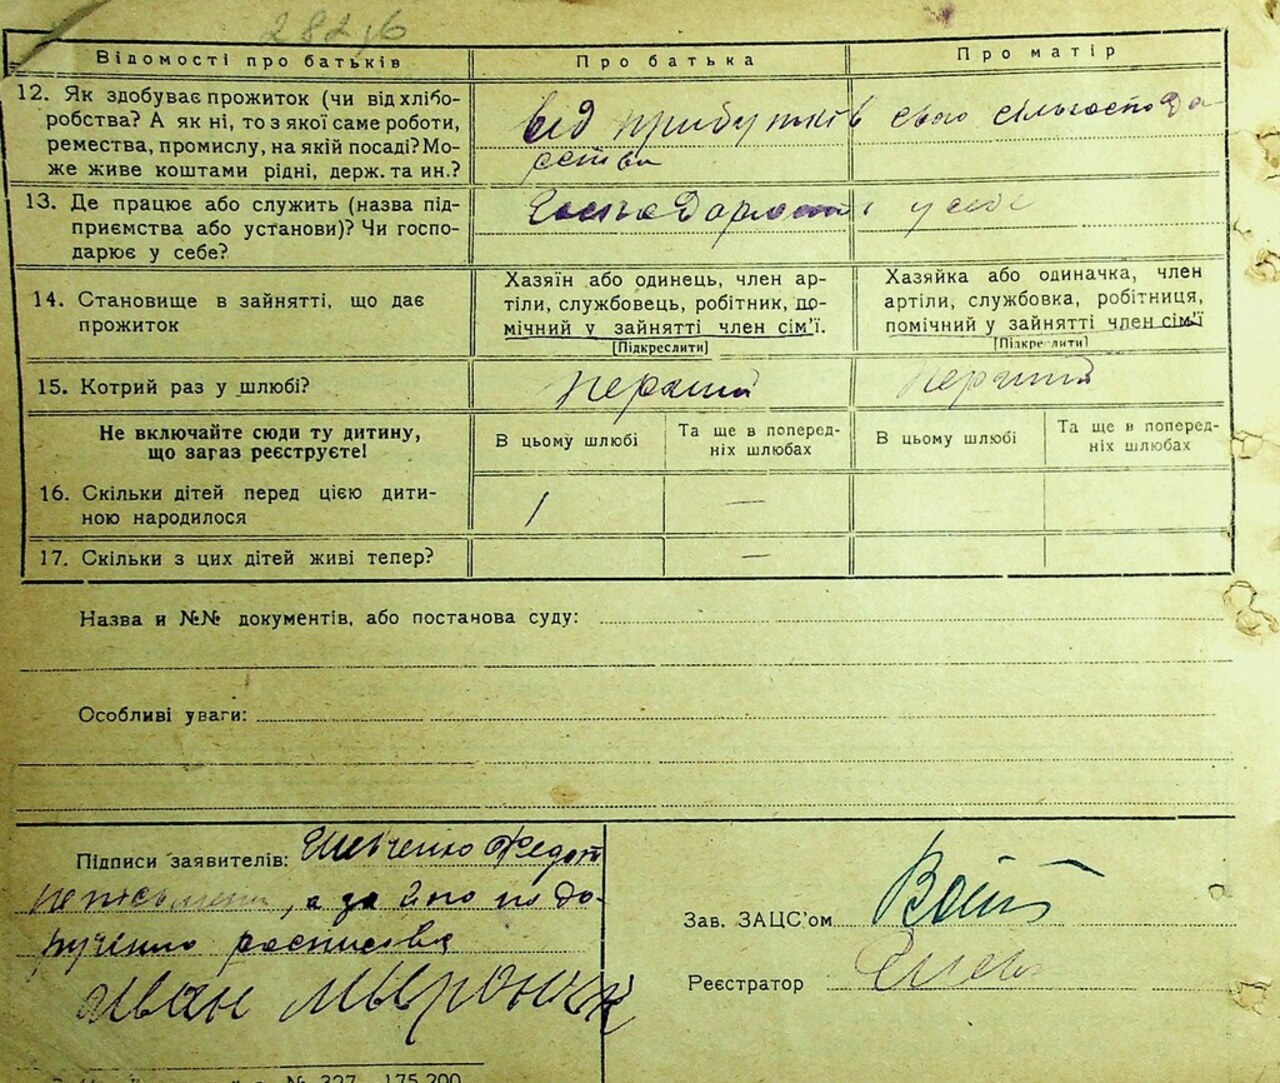 282
Відомості про батьків
Про батька
Про матір
12. Як здобуває прожиток (чи від хлібо-
робства? А як ні, то з якої саме роботи,
ремества, промислу, на якій посаді? Мо-
же живе коштами рідні, держ. та ин.?
від прибутків свого сільгоспода-
рства
13. Де працює або служить (назва під-
приємства або установи)? Чи госпо-
дарює у себе?
у себе
14. Становище в зайнятті, що дає
прожиток
Хазяїн або одинець, член ар-
тіли, службовець, робітник, по-
мічний у зайнятті член сім'ї.
[Підкреслити]
Хазяйка або одиначка, член
артіли, службовка, робітниця,
помічний у зайнятті член сім'ї
[Підкреслити]
15. Котрий раз у шлюбі?
перший
перший
Не включайте сюди ту дитину,
що загаз реєструєте!
В цьому шлюбі
Та ще в поперед-
ніх шлюбах
В цьому шлюбі
Та ще в поперед-
ніх шлюбах
16. Скільки дітей перед цією дити-
ною народилося
1
—
17. Скільки з цих дітей живі тепер?
—
Назва и №№ документів, або постанова суду:
Особливі уваги:
Підписи заявителів: Шевченко Федот
неписьменн , а за його по до-
ручінню росписався
Иван Миронюк
Зав. ЗАЦС'ом
Реєстратор
№ 327 175.200